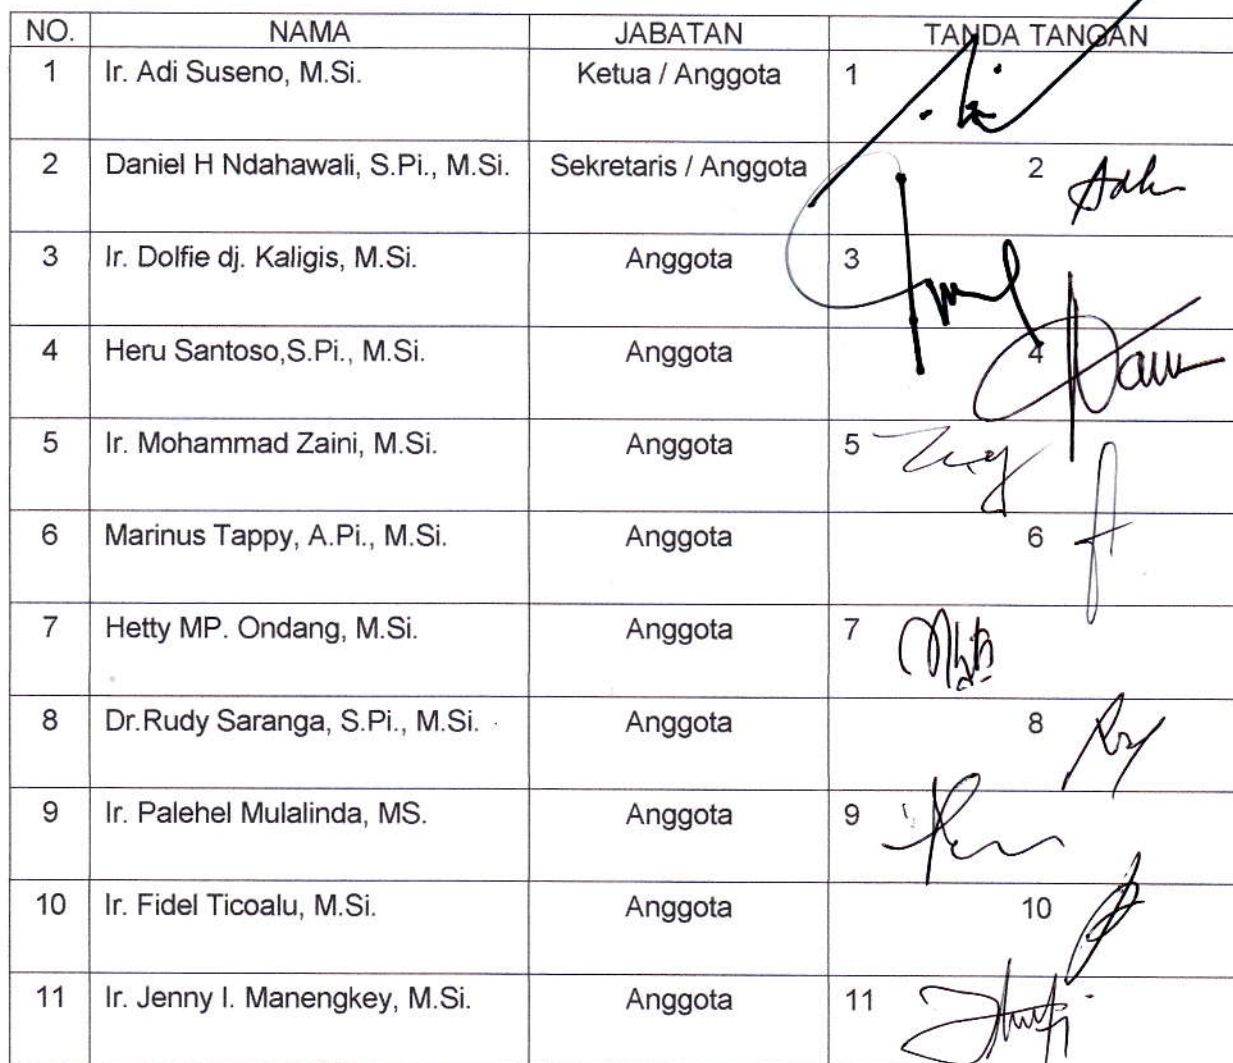 NO. NAMA JABATAN TANDA TANGAN
1 Ir. Adi Suseno, M.Si. Ketua / Anggota 1
2 Daniel H Ndahawali, S.Pi., M.Si. Sekretaris / Anggota 2
3 Ir. Dolfie dj. Kaligis, M.Si. Anggota 3
4 Heru Santoso,S.Pi., M.Si. Anggota 4
5 Ir. Mohammad Zaini, M.Si. Anggota 5
6 Marinus Tappy, A.Pi., M.Si. Anggota 6
7 Hetty MP. Ondang, M.Si. Anggota 7
8 Dr.Rudy Saranga, S.Pi., M.Si. Anggota 8
9 Ir. Palehel Mulalinda, MS. Anggota 9
10 Ir. Fidel Ticoalu, M.Si. Anggota 10
11 Ir. Jenny I. Manengkey, M.Si. Anggota 11